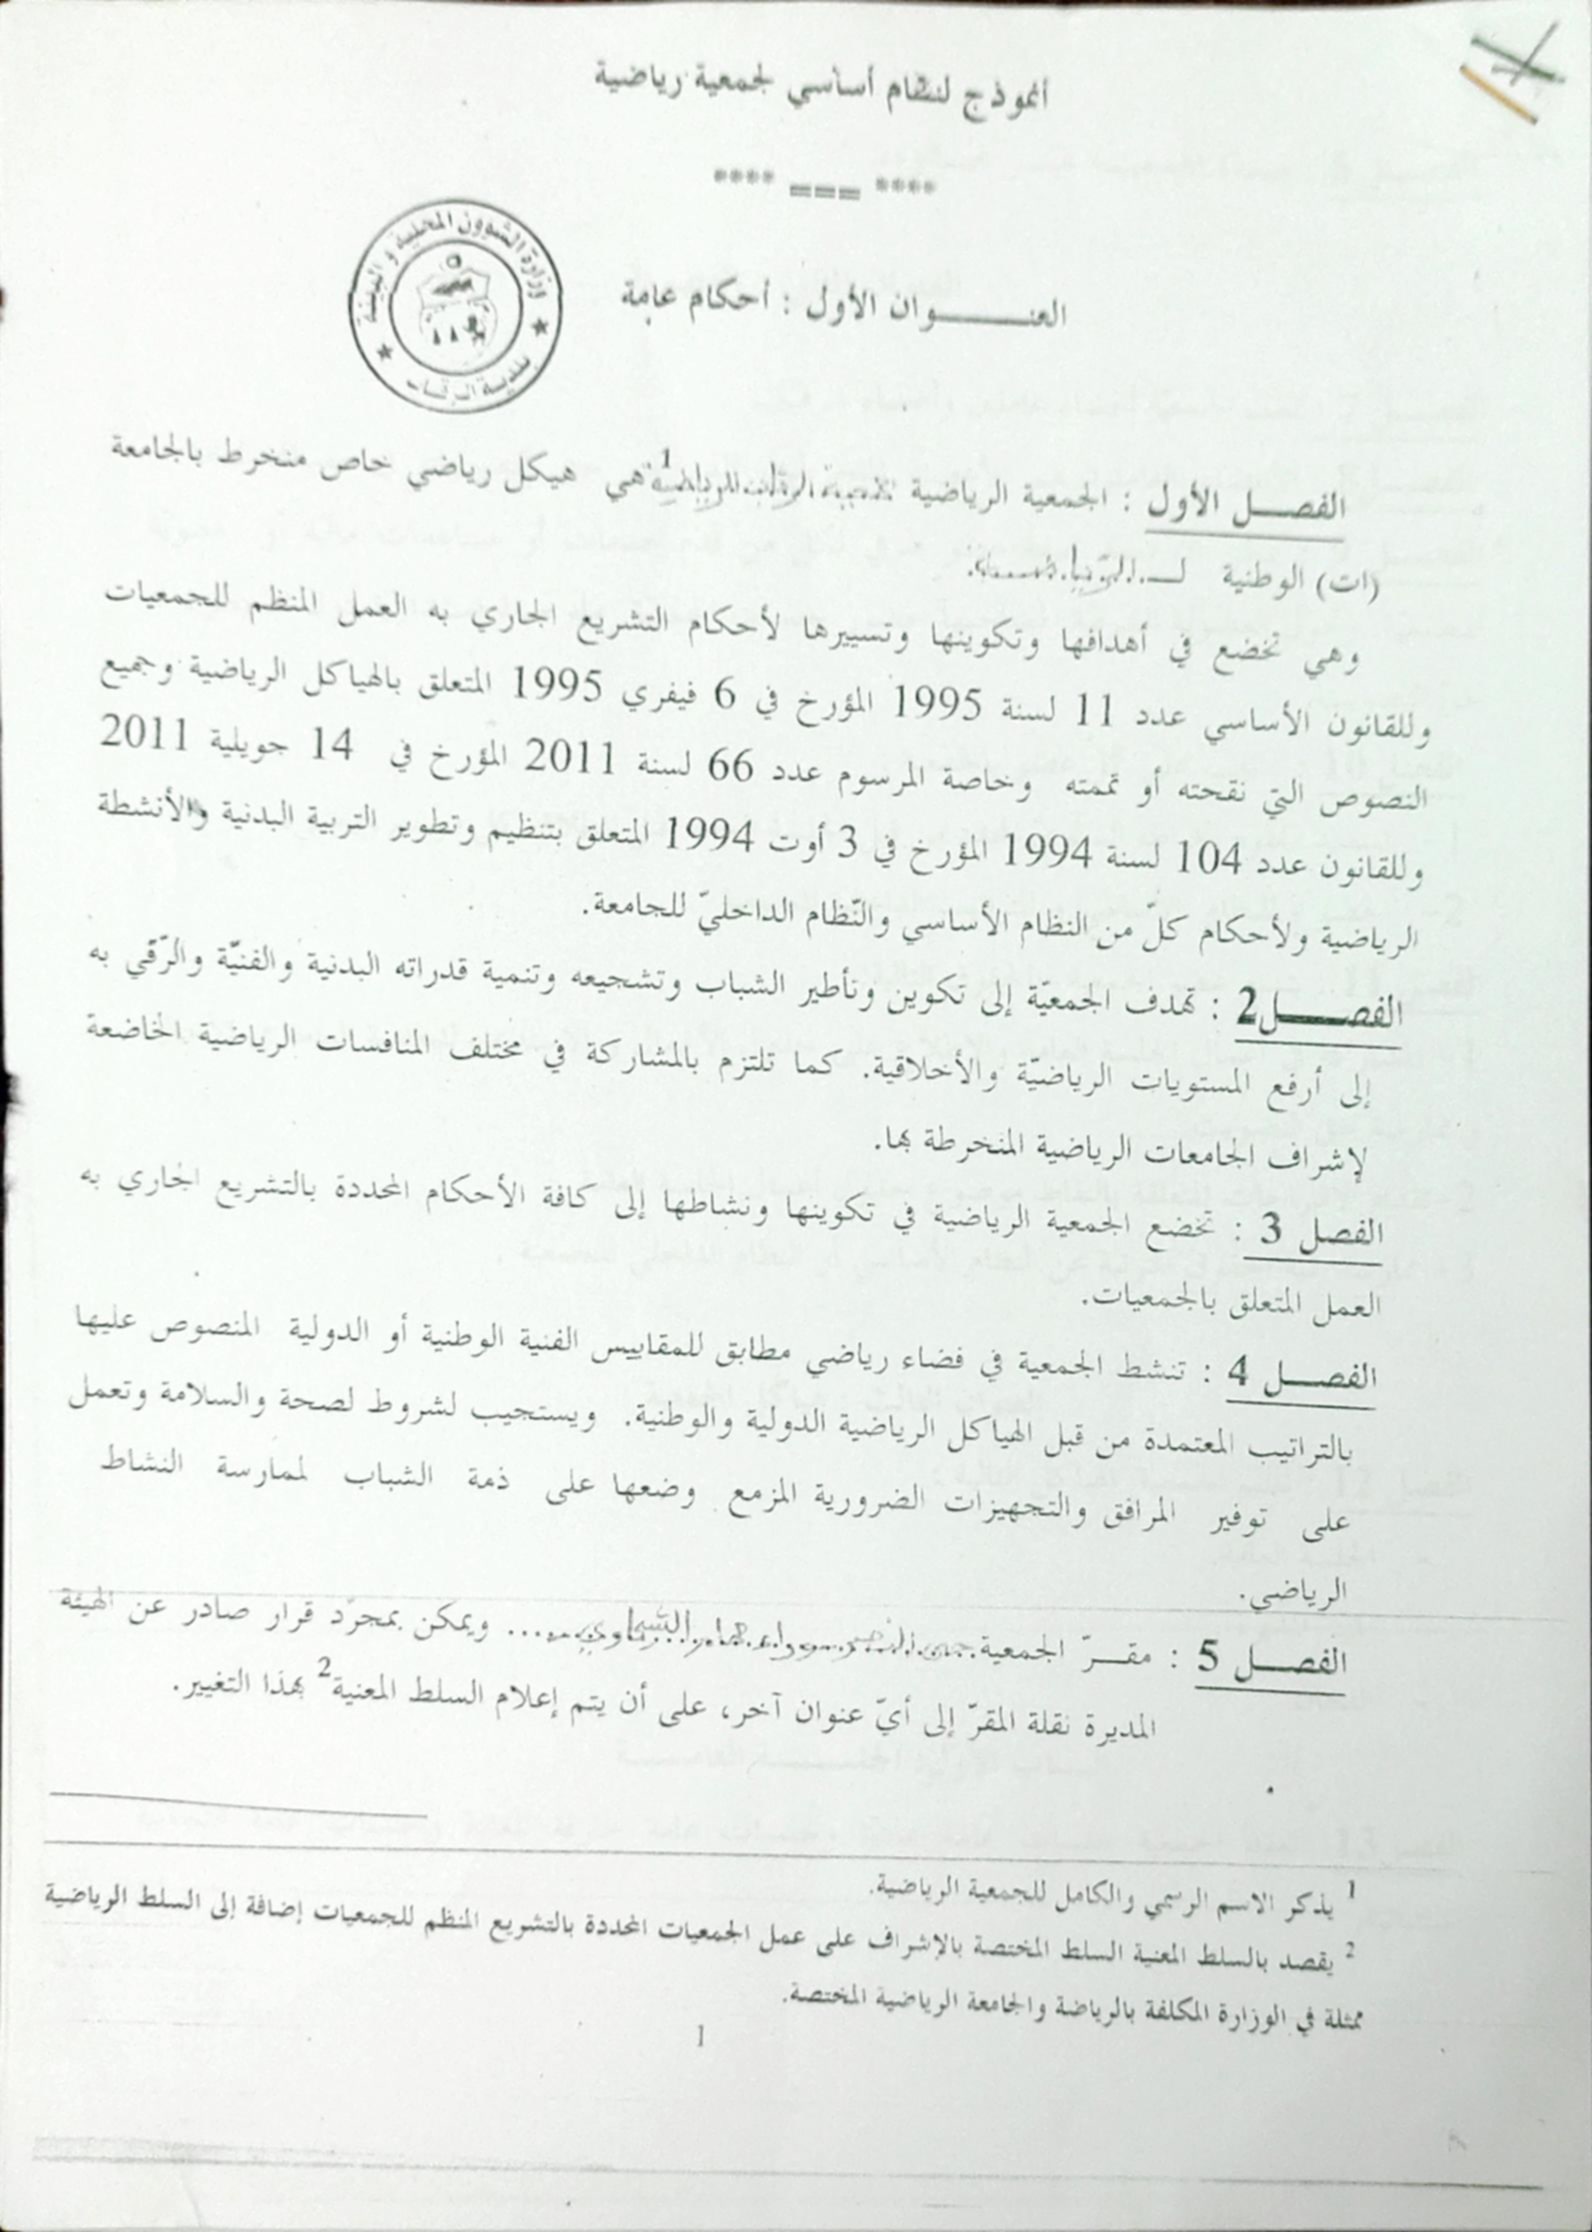 أنموذج لنظام أساسي لجمعية رياضية
**** === ****
وزارة الشؤون المحلية و البيئة
بلدية الرقاب
العنـــــــوان الأول : أحكام عامة
الفصــــل الأول : الجمعية الرياضية الرقاب للرياضية¹ هي هيكل رياضي خاص منخرط بالجامعة
(ات) الوطنية لـ
وهي تخضع في أهدافها وتكوينها وتسييرها لأحكام التشريع الجاري به العمل المنظم للجمعيات
وللقانون الأساسي عدد 11 لسنة 1995 المؤرخ في 6 فيفري 1995 المتعلق بالهياكل الرياضية وجميع
النصوص التي نقحته أو تممته وخاصة المرسوم عدد 66 لسنة 2011 المؤرخ في 14 جويلية 2011
وللقانون عدد 104 لسنة 1994 المؤرخ في 3 أوت 1994 المتعلق بتنظيم وتطوير التربية البدنية والأنشطة
الرياضية ولأحكام كلّ من النظام الأساسي والنّظام الداخليّ للجامعة.
الفصــــــل2 : تهدف الجمعيّة إلى تكوين وتأطير الشباب وتشجيعه وتنمية قدراته البدنية والفنيّة والرّقي به
إلى أرفع المستويات الرياضيّة والأخلاقية. كما تلتزم بالمشاركة في مختلف المنافسات الرياضية الخاضعة
لإشراف الجامعات الرياضية المنخرطة بها.
الفصل 3 : تخضع الجمعية الرياضية في تكوينها ونشاطها إلى كافة الأحكام المحددة بالتشريع الجاري به
العمل المتعلق بالجمعيات.
الفصــــل 4 : تنشط الجمعية في فضاء رياضي مطابق للمقاييس الفنية الوطنية أو الدولية المنصوص عليها
بالتراتيب المعتمدة من قبل الهياكل الرياضية الدولية والوطنية. ويستجيب لشروط لصحة والسلامة وتعمل
على توفير المرافق والتجهيزات الضرورية المزمع وضعها على ذمة الشباب لممارسة النشاط
الرياضي.
الفصــــل 5 : مقــرّ الجمعية النصر ..... ويمكن بمجرّد قرار صادر عن الهيئة
المديرة نقلة المقرّ إلى أيّ عنوان آخر، على أن يتم إعلام السلط المعنية² بهذا التغيير.
¹ يذكر الاسم الرسمي والكامل للجمعية الرياضية.
² يقصد بالسلط المعنية السلط المختصة بالإشراف على عمل الجمعيات المحددة بالتشريع المنظم للجمعيات إضافة إلى السلط الرياضية
ممثلة في الوزارة المكلفة بالرياضة والجامعة الرياضية المختصة.
1